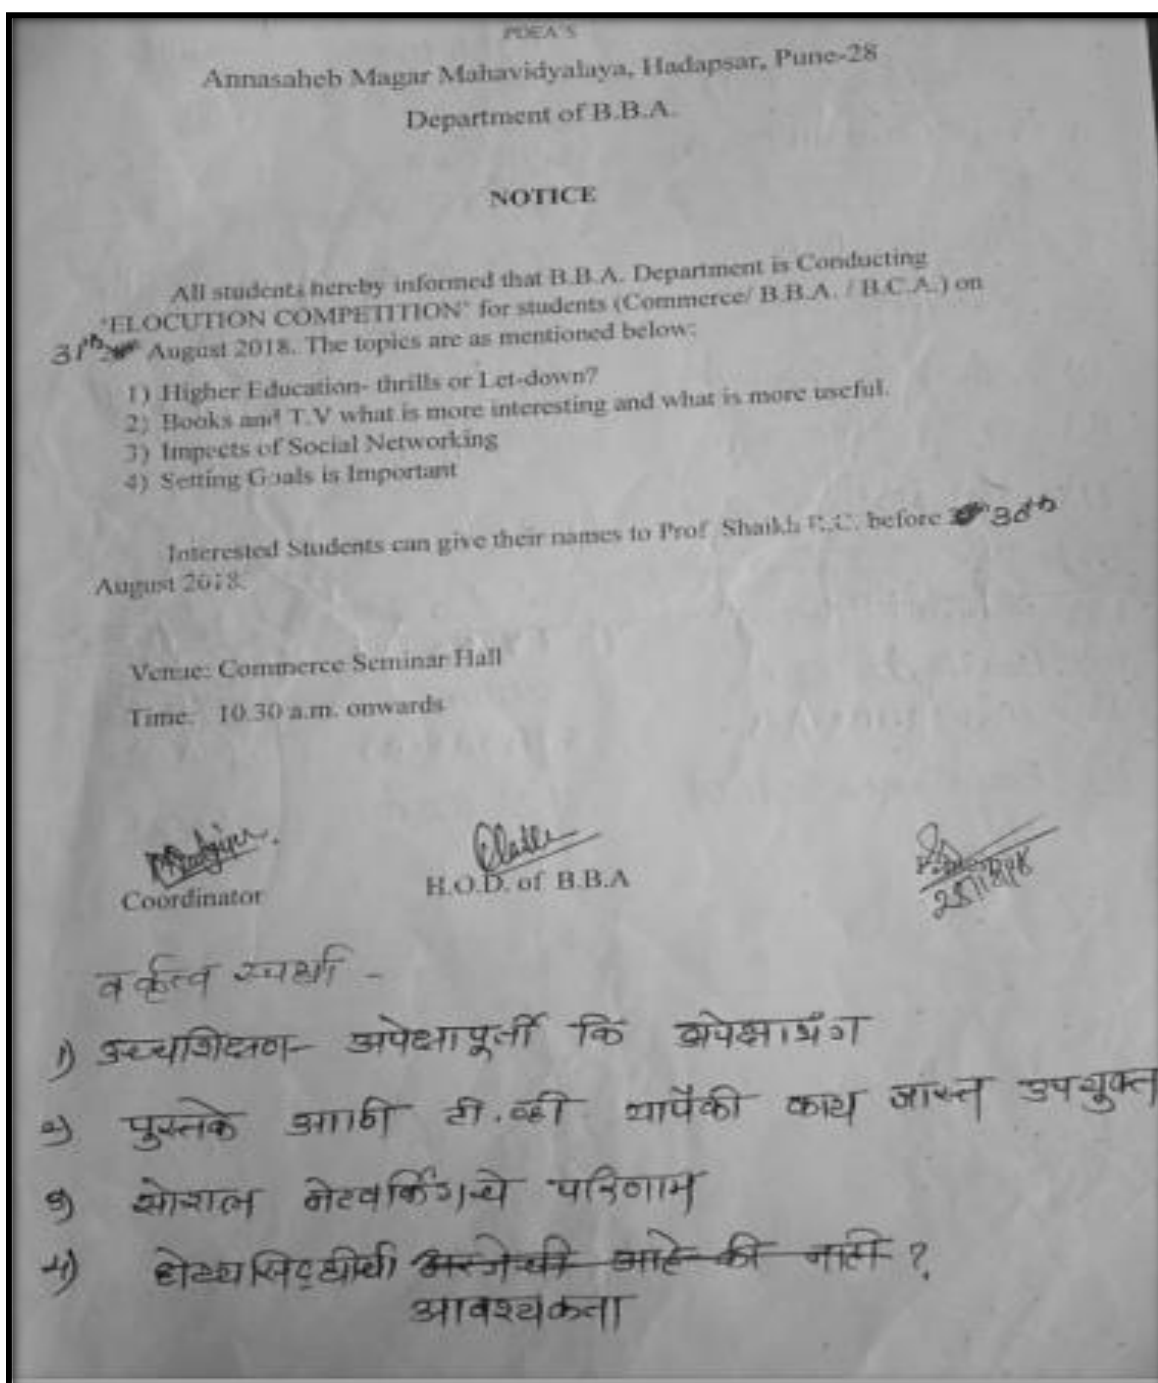 PDEA'S
Annasaheb Magar Mahavidyalaya, Hadapsar, Pune-28
Department of B.B.A.
NOTICE
All students hereby informed that B.B.A. Department is Conducting
"ELOCUTION COMPETITION" for students (Commerce/ B.B.A. / B.C.A.) on
31th August 2018. The topics are as mentioned below:
1) Higher Education- thrills or Let-down?
2) Books and T.V what is more interesting and what is more useful.
3) Impects of Social Networking
4) Setting Goals is Important
Interested Students can give their names to Prof Shaikh before 30th
August 2018.
Venue: Commerce Seminar Hall
Time: 10.30 a.m. onwards
Coordinator
H.O.D. of B.B.A
वर्कृत्व स्पर्धा -
1) उच्चशिक्षण- अपेक्षापूर्ती कि अपेक्षाभंग
२) पुस्तके आणि टी.व्ही यापैकी काय जास्त उपयुक्त
३) सोशल नेटवर्किंगचे परिणाम
4) ध्येयसिद्धीची आहे की नाही ?
आवश्यकता